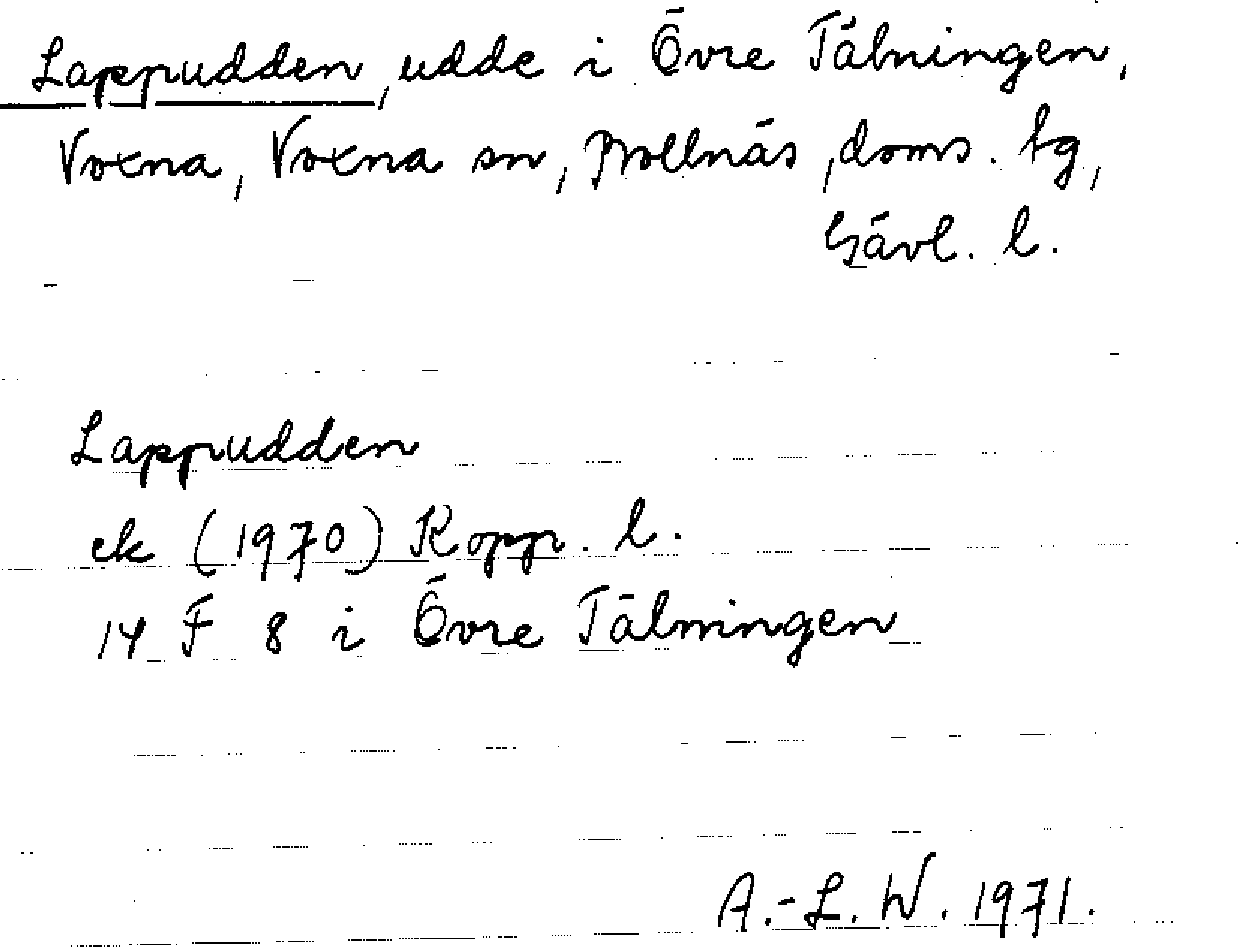 Lappudden, udde i Övre Tälningen,
Voxna, Voxna sn, Bollnäs doms. tg,
Gävl. l.
Lappudden
ek (1970) Kopp. l.
14 F 8 i Övre Tälningen
A.-L. W. 1971.